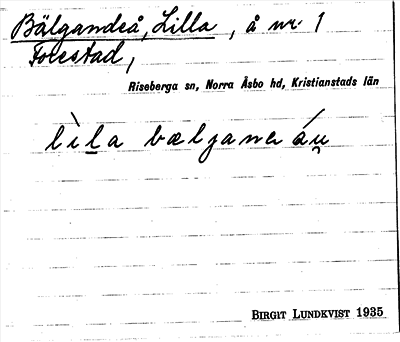 Bälgandeå, Lilla, å nr 1
Forestad,
Riseberga sn, Norra Åsbo hd, Kristianstads län
lìla bælganer áu̯
BIRGIT LUNDKVIST 1935